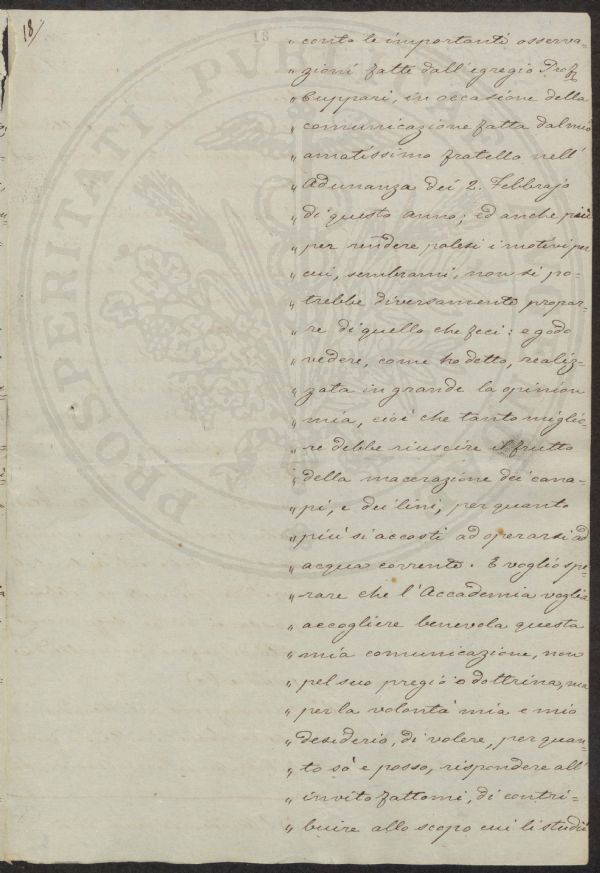 18/
18
„ conto le importanti osserva-
„ zioni fatte dall'egregio Prof.
„ Cuppari, in occasione della
„ comunicazione fatta dal mio
„ amatissimo fratello nell'
„ Adunanza dei 2. Febbrajo
„ di questo anno; ed anche più
„ per rendere palesi i motivi per
„ cui, sembrami, non si po-
„ trebbe diversamente propor-
„ re di quello che feci: e godo
„ vedere, come ho detto, realiz-
„ zata in grande la opinion
„ mia, cioè che tanto miglio-
„ re debbe riuscire il frutto
„ della macerazione dei cana-
„ pi, e dei lini, per quanto
„ più si accosti ad operarsi ad
„ acqua corrente. E voglio spe-
„ rare che l'Accademia voglia
„ accogliere benevola questa
„ mia comunicazione, non
„ pel suo pregio o dottrina, ma
„ per la volontà mia e mio
„ desiderio, di volere, per quan-
„ to sò e posso, rispondere all'
„ invito fattomi, di contri-
„ buire allo scopo cui li studii
PROSPERITATI PUBLICAE